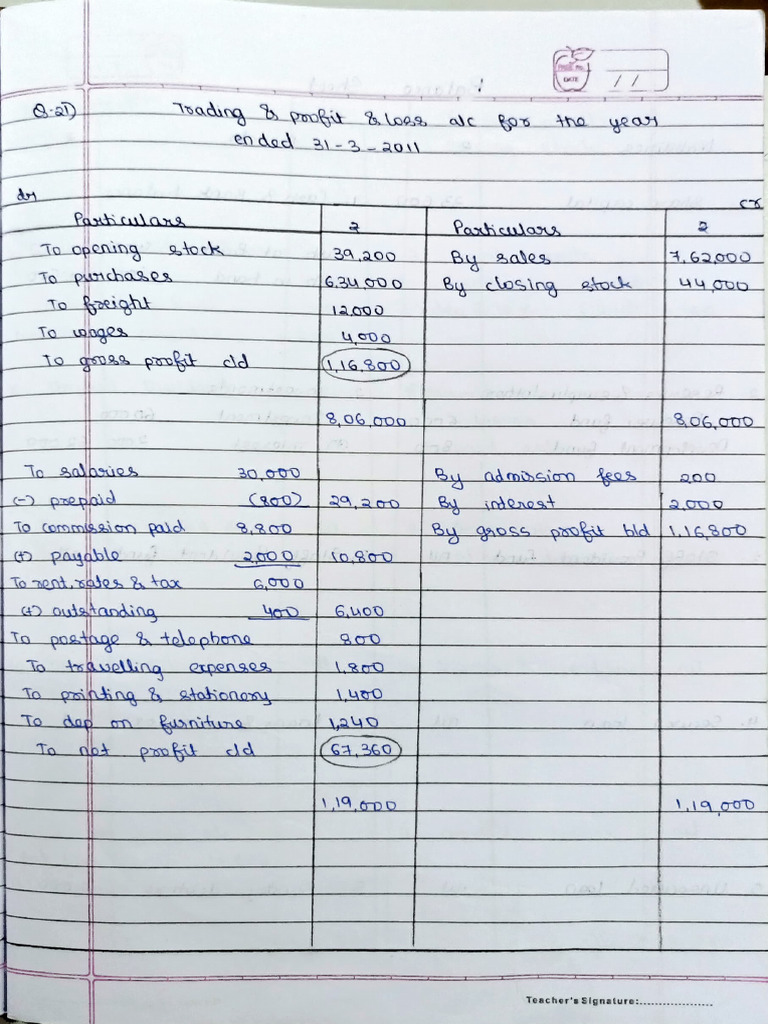 PAGE NO.
DATE / /
Q-21) Trading & profit & loss a/c for the year
ended 31-3-2011
dr cr
Particulars ₹ Particulars ₹
To opening stock 39,200 By sales 7,62,000
To purchases 6,34,000 By closing stock 44,000
To freight 12,000
To wages 4,000
To gross profit c/d 1,16,800
8,06,000 8,06,000
To salaries 30,000 By admission fees 200
(-) prepaid (800) 29,200 By interest 2,000
To commission paid 8,800 By gross profit b/d 1,16,800
(+) payable 2,000 10,800
To rent, rates & tax 6,000
(+) outstanding 400 6,400
To postage & telephone 800
To travelling expenses 1,800
To printing & stationery 1,400
To dep on furniture 1,240
To net profit c/d 67,360
1,19,000 1,19,000
Teacher's Signature:....................